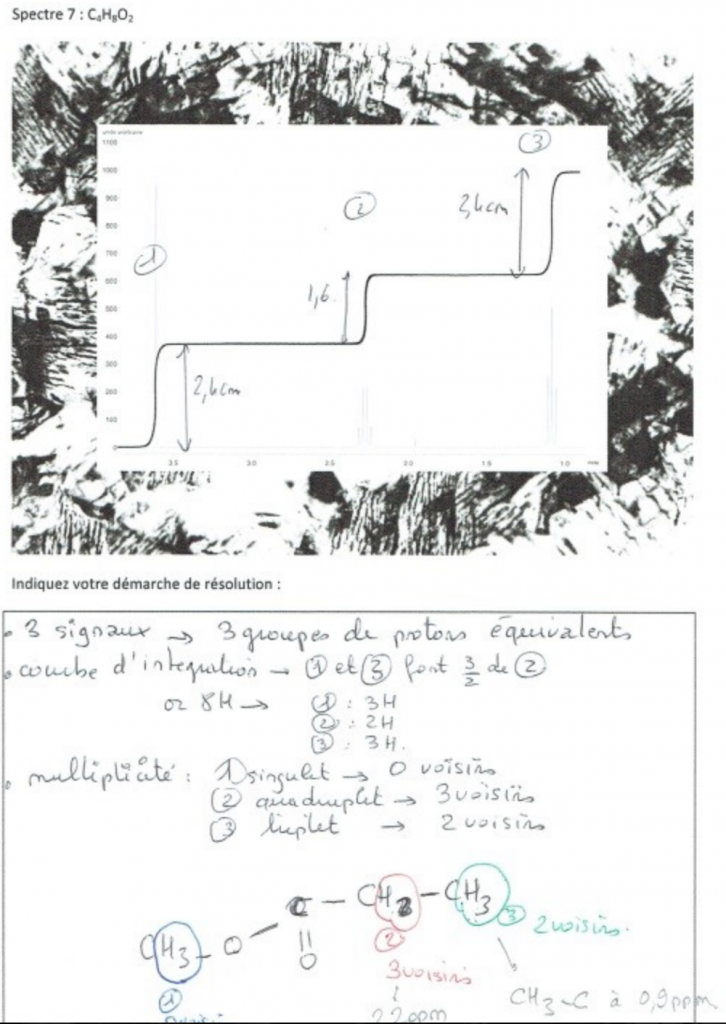 Spectre 7 : C₄H₈O₂
unité arbitraire
1100
1000
900
800
700
600
500
400
300
200
100
0
3.5 3.0 2.5 2.0 1.5 1.0 ppm
①
②
③
2,4cm
1,6.
2,4cm
Indiquez votre démarche de résolution :
• 3 signaux → 3 groupes de protons équivalents
• courbe d'intégration → ① et ③ font 3/2 de ②
or 8H → ① : 3H
② : 2H
③ : 3H.
• multiplicité : ① singulet → 0 voisins
② quadruplet → 3 voisins
③ triplet → 2 voisins
CH₃ - O - C - CH₂ - CH₃
||
O
① ② ③ 2 voisins.
3 voisins
CH₃-C à 0,9ppm
2,2ppm